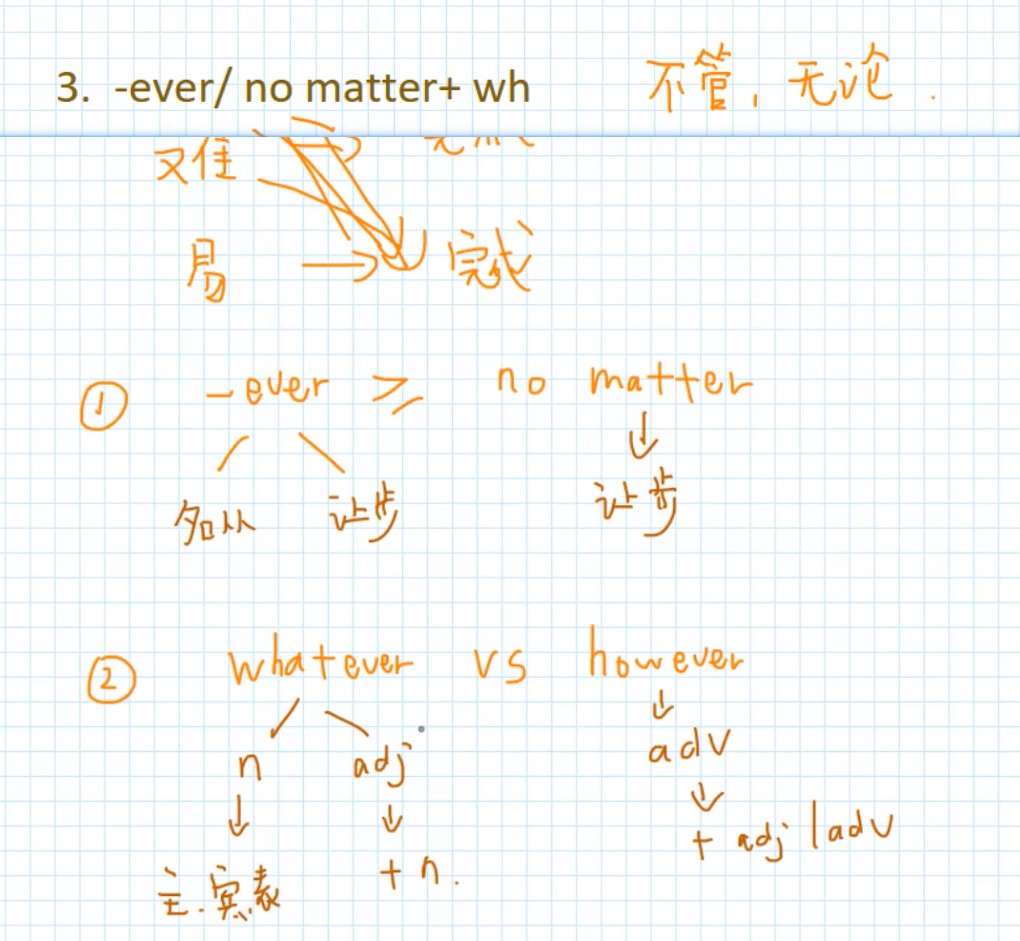 3. -ever/ no matter+ wh 不管, 无论.
难
易 → 完成
① -ever ≥ no matter
名从 让步 让步
② whatever vs however
n adj adv
+ adj/adv
主.宾.表 + n.